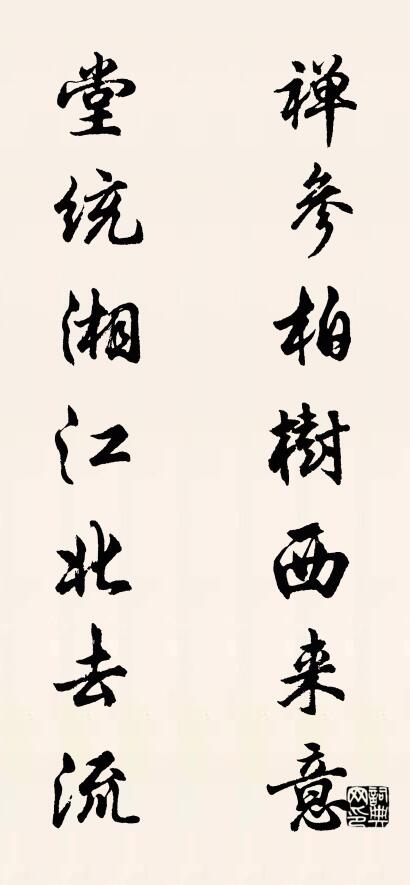 禅参柏樹西来意
堂统湘江北去流
詞典网印